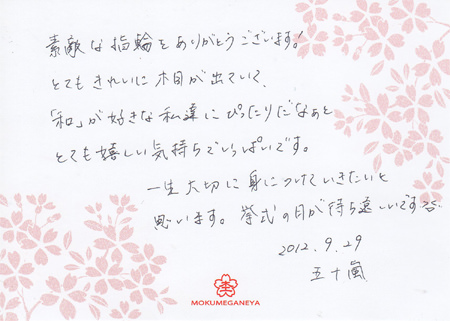 素敵な指輪をありがとうございます！
とてもきれいに木目が出ていて、
「和」が好きな私達にぴったりだなぁと
とても嬉しい気持ちでいっぱいです。
一生大切に身につけていきたいと
思います。挙式の日が待ち遠しいです
2012.9.29
五十嵐
MOKUMEGANEYA